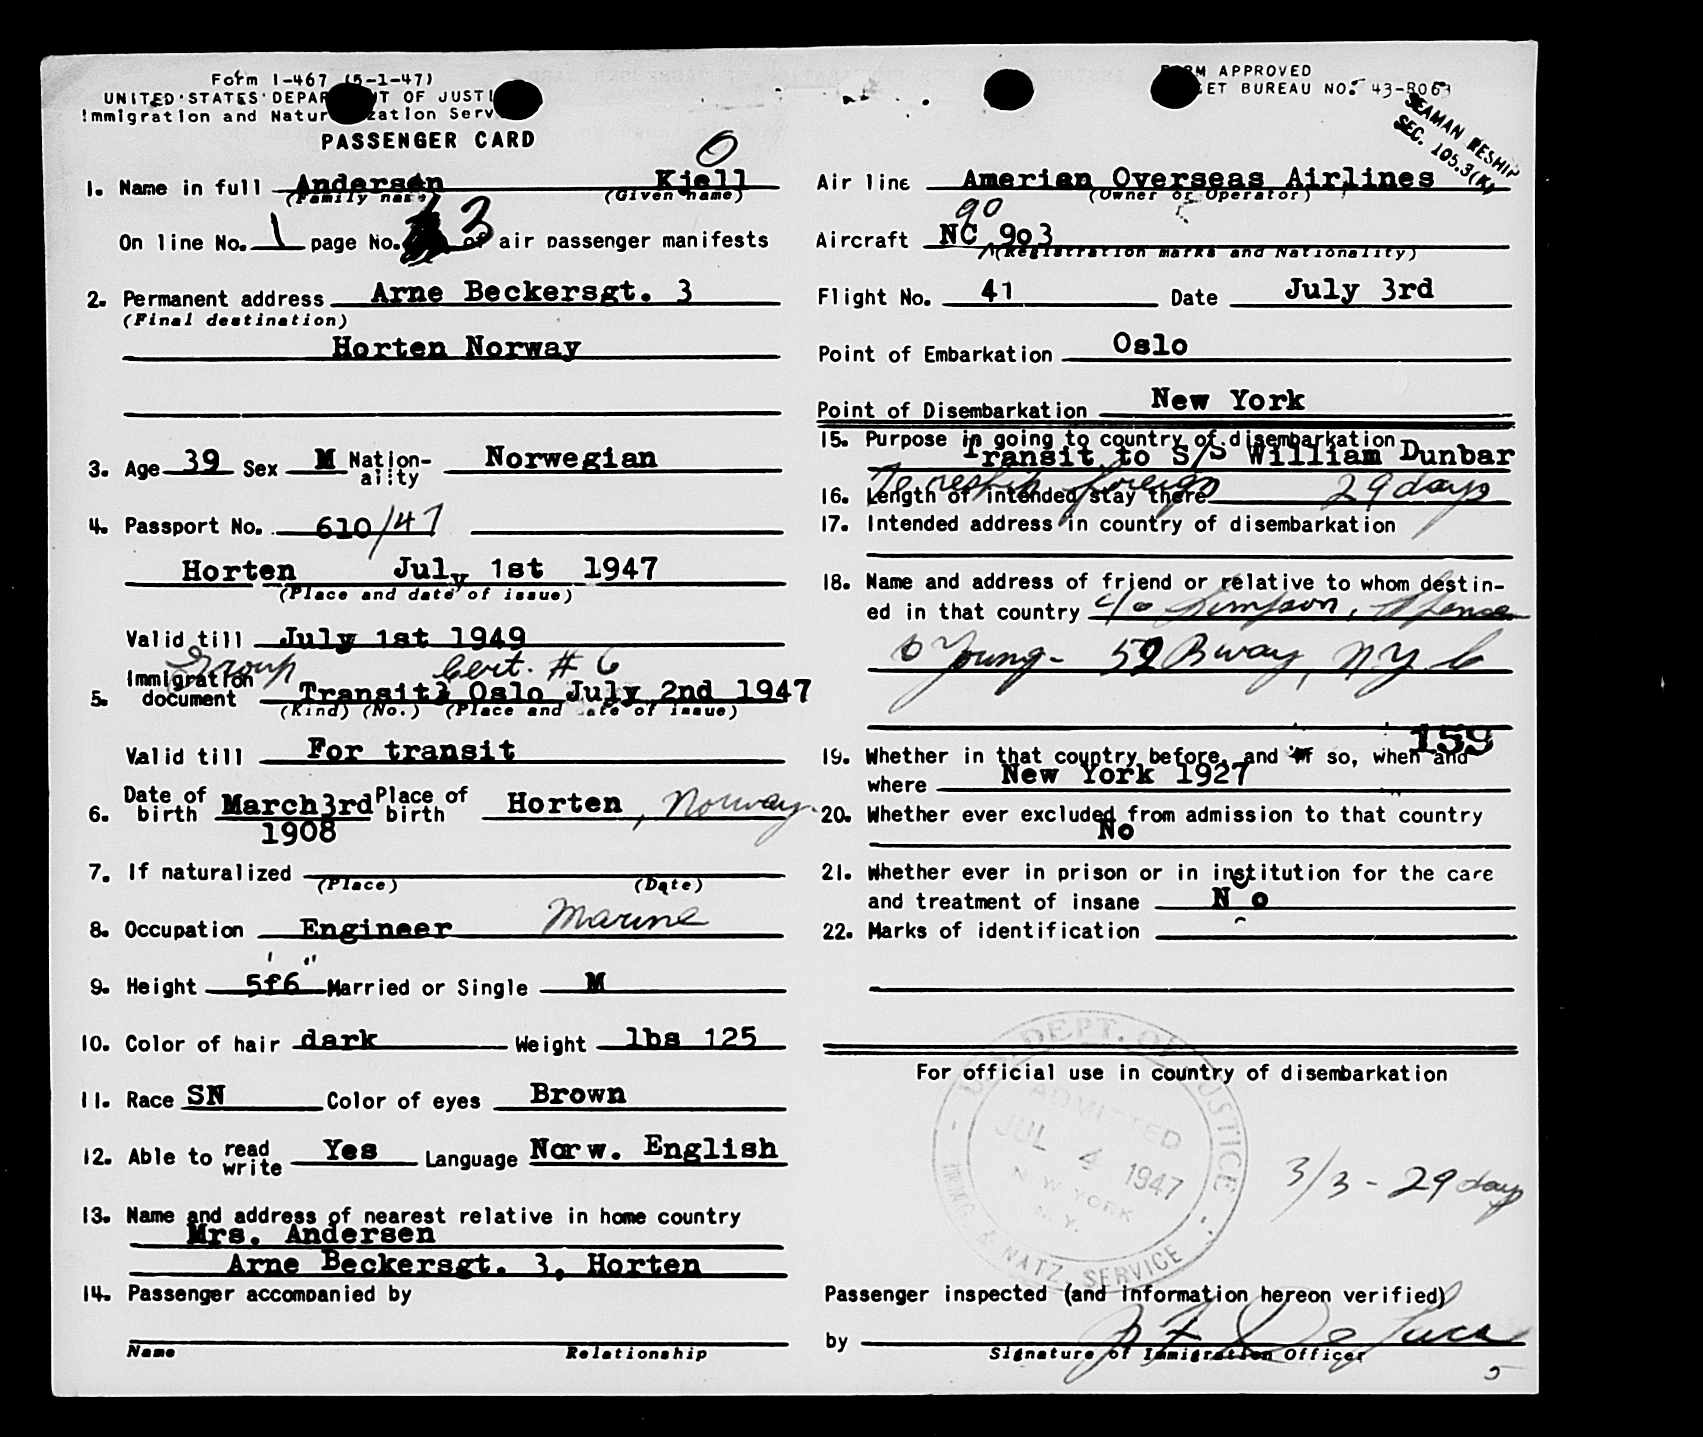 Form I-467 (5-1-47)
UNITED STATES DEPAR T OF JUSTI
Immigration and Natur zation Serv
PASSENGER CARD
FORM APPROVED
ET BUREAU NO. 43-R063
SEAMAN RESHIP
SEC. 105.3(K)
O
1. Name in full Andersen Kjell
(Family name) (Given name)
On line No. 1 page No. 3 of air passenger manifests
2. Permanent address Arne Beckersgt. 3
(Final destination)
Horten Norway
3. Age 39 Sex M Nation-ality Norwegian
4. Passport No. 610/47
Horten July 1st 1947
(Place and date of issue)
Valid till July 1st 1949
Group Cert. # 6
5. Immigration document Transit; Oslo July 2nd 1947
(Kind) (No.) (Place and date of issue)
Valid till For transit
6. Date of birth March 3rd 1908 Place of birth Horten, Norway.
7. If naturalized
(Place) (Date)
8. Occupation Engineer Marine
9. Height 5f6 Married or Single M
10. Color of hair dark Weight lbs 125
11. Race SN Color of eyes Brown
12. Able to read write Yes Language Norw. English
13. Name and address of nearest relative in home country
Mrs. Andersen
Arne Beckersgt. 3, Horten
14. Passenger accompanied by
Name Relationship
Air line Amerian Overseas Airlines
(Owner or Operator)
90
Aircraft NC 903
(Registration marks and Nationality)
Flight No. 41 Date July 3rd
Point of Embarkation Oslo
Point of Disembarkation New York
15. Purpose in going to country of disembarkation
Transit to S/S William Dunbar
To reship foreign
16. Length of intended stay there 29 days
17. Intended address in country of disembarkation
18. Name and address of friend or relative to whom destin-
ed in that country c/o Simpson, Spence
& Young - 52 Bway, N Y C
159
19. Whether in that country before, and if so, when and
where New York 1927
20. Whether ever excluded from admission to that country
No
21. Whether ever in prison or in institution for the care
and treatment of insane No
22. Marks of identification
For official use in country of disembarkation
U.S. DEPT. OF JUSTICE
ADMITTED
JUL 4 1947
NEW YORK
N. Y.
IMMIG. & NATZ. SERVICE
3/3 - 29 days
Passenger inspected (and information hereon verified)
by
Signature of Immigration Officer
5